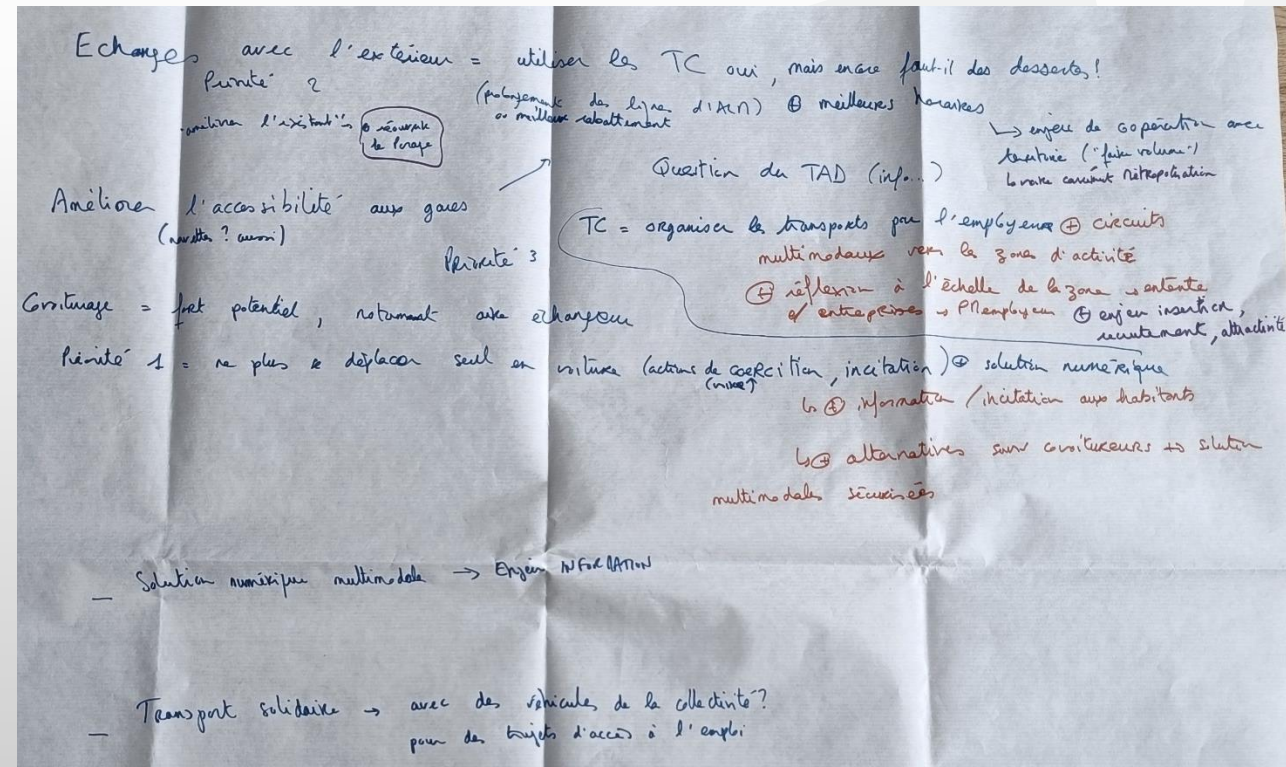 Echanges avec l'extérieur = utiliser les TC oui, mais encore faut-il des dessertes!
Priorité 2
(prolongement des lignes d'ALM) ⊕ meilleurs horaires
ou meilleur rabattement
améliorer l'existant
↳ enjeu de coopération avec
territoire ("faire volume")
Question du TAD (info...)
Améliorer l'accessibilité aux gares
(navettes ? aussi)
Priorité 3
TC = organiser les transports par l'employeur ⊕ circuits
multimodaux vers les zones d'activité
⊕ réflexion à l'échelle de la zone → entente
entreprises → PMemployeur ⊕ enjeu insertion,
recrutement, attractivité
Covoiturage = fort potentiel, notamment aire échangeur
Priorité 1 = ne plus se déplacer seul en voiture (actions de coeRcition, incitation) ⊕ solution numérique
↳ ⊕ information / incitation aux habitants
↳ ⊕ alternatives covoitureurs → solution
multimodales sécurisées
_ Solution numérique multimodale → Enjeu INFORMATION
_ Transport solidaire → avec des véhicules de la collectivité ?
pour des trajets d'accès à l'emploi